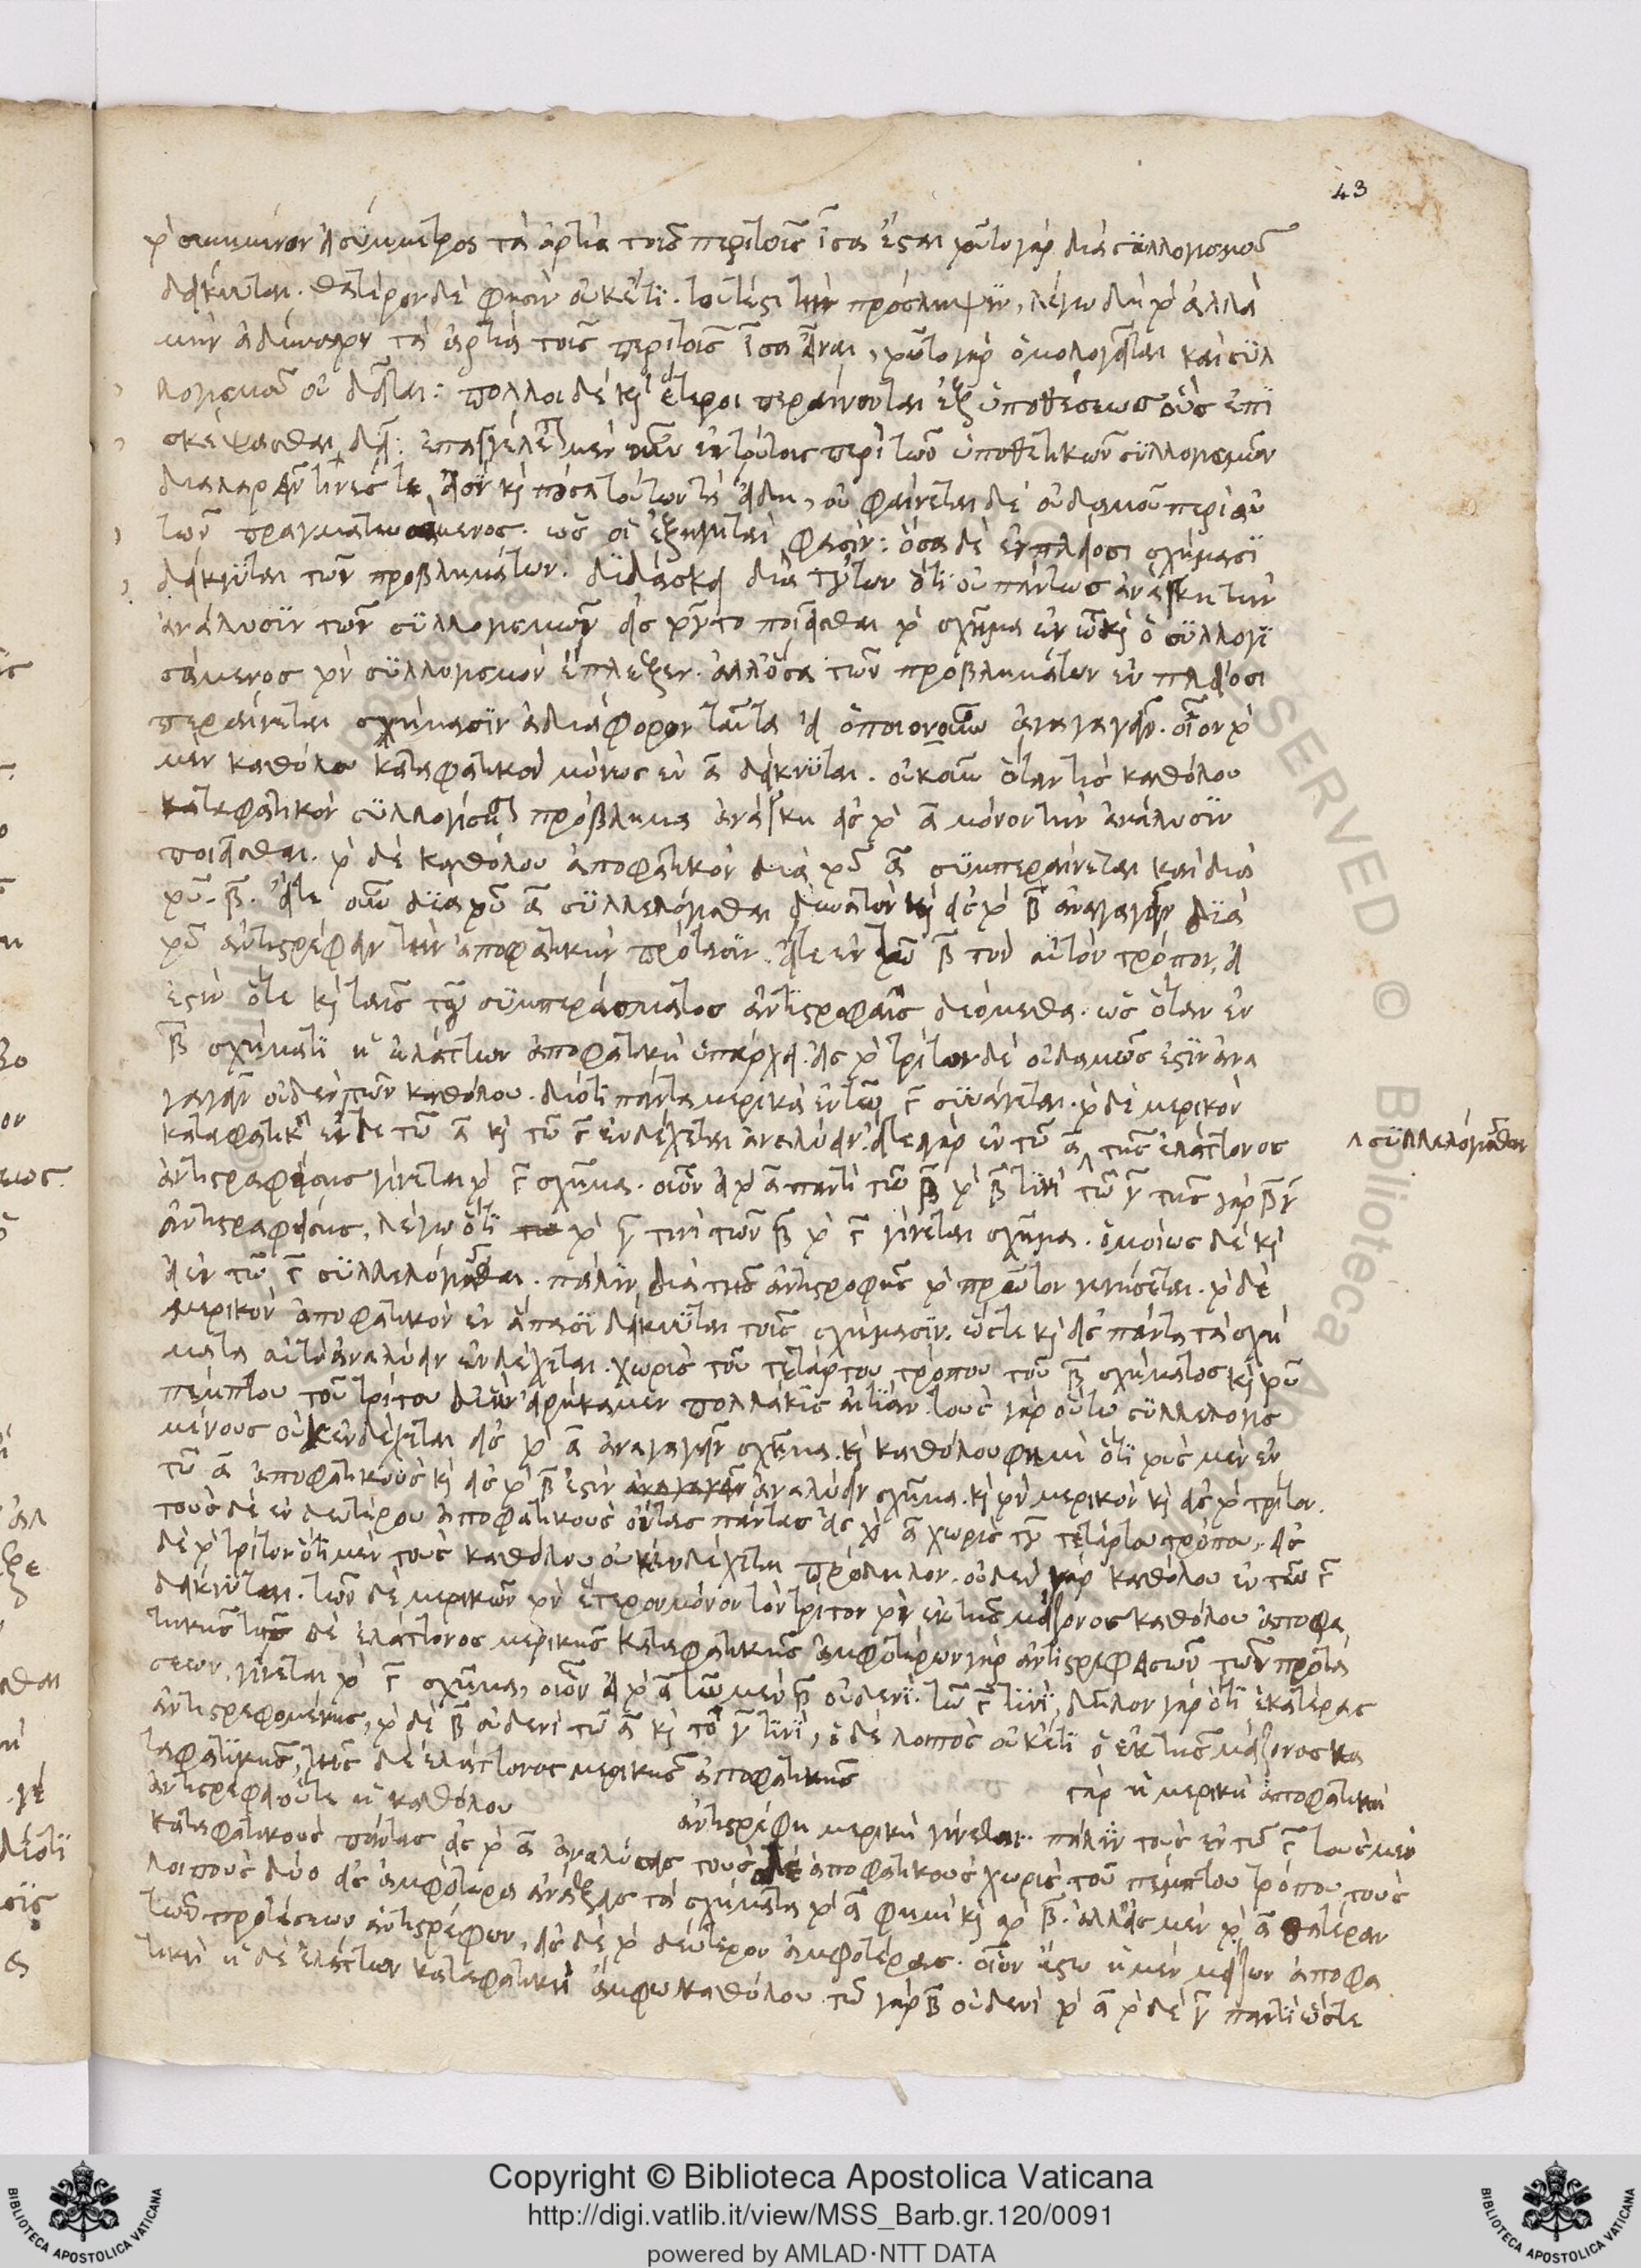 43
τὸ συνημμένον ἢ σύμμετρος τὰ ἄρτια τοῖς περιττοῖς ἴσα ἔσται τοῦτο γὰρ διὰ συλλογισμοῦ
δείκνυται. θάτερον δέ φησιν οὐκέτι. τουτέστι τὴν πρόσληψιν, λέγω δὴ τὸ ἀλλὰ
μὴν ἀδύνατον τὰ ἄρτια τοῖς περιττοῖς ἴσα εἶναι, τοῦτο γὰρ ὁμολογεῖται καὶ συλ
λογισμοῦ οὐ δεῖται: πολλοὶ δὲ καὶ ἕτεροι περαίνονται ἐξ ὑποθέσεως οὓς ἐπι
σκέψασθαι δεῖ: ἐπαγγέλλεται μὲν ἐν τούτοις περὶ τῶν ὑποθετικῶν συλλογισμῶν
διαλαβεῖν τίνες τε εἰσὶ καὶ πόσα τούτων τὰ εἴδη, οὐ φαίνεται δὲ οὐδαμοῦ περὶ αὐ
τῶν πραγματευσάμενος. ὡς οἱ ἐξηγηταί φασιν: ὅσα δὲ ἐν πλείοσι σχήμασι
δείκνυται τῶν προβλημάτων. διδάσκει διὰ τούτων ὅτι οὐ πάντως ἀνάγκη τὴν
ἀνάλυσιν τῶν συλλογισμῶν εἰς τοῦτο ποιεῖσθαι τὸ σχῆμα ἐν ᾧ καὶ ὁ συλλογι
σάμενος τὸν συλλογισμὸν ἔπλεξεν. ἀλλ' ὅσα τῶν προβλημάτων ἐν πλείοσι
περαίνεται σχήμασιν ἀδιάφορον ταῦτα εἰ ὁποιονοῦν ἀναγαγεῖν. οἷον τὸ
μὲν καθόλου καταφατικὸν μόνως ἐν α δείκνυται. οὐκοῦν ὅταν τις καθόλου
καταφατικὸν συλλογίσηται πρόβλημα ἀνάγκη εἰς τὸ α μόνον τὴν ἀνάλυσιν
ποιεῖσθαι. τὸ δὲ καθόλου ἀποφατικὸν διὰ τοῦ α συμπεραίνεται καὶ διὰ
τοῦ β. εἴτε οὖν διὰ τοῦ α συλλελόγισται δυνατὸν καὶ εἰς τὸ β ἀναγαγεῖν διὰ
τοῦ ἀντιστρέφειν τὴν ἀποφατικὴν πρότασιν. εἴτε ἐν τῷ β τὸν αὐτὸν τρόπον, εἰ
ἔστιν ὅτε καὶ ταῖς τοῦ συμπεράσματος ἀντιστροφαῖς δεόμεθα. ὡς ὅταν ἐν
β σχήματι ἡ ἐλάττων ἀποφατικὴ ὑπάρχει. εἰς τὸ τρίτον δὲ οὐδαμῶς ἔστιν ἀνα
γαγεῖν οὐδὲν τῶν καθόλου. διότι πάντα μερικὰ ἐν τῷ γ συνάγεται. τὸ δὲ μερικὸν
καταφατικὸν ἔν τε τῷ α καὶ τῷ γ ἐνδέχεται ἀναλύειν. εἴτε γὰρ ἐν τῷ α τῆς ἐλάττονος
συλλελόγισται
ἀντιστραφείσης γίνεται τὸ γ σχῆμα. οἷον εἰ τὸ α παντὶ τῷ β τὸ β τινὶ τῷ γ τῆς γὰρ βγ
ἀντιστραφείσης, λέγω ὅτι τὸ γ τινὶ τῶν β τὸ γ γίνεται σχῆμα. ὁμοίως δὲ καὶ
εἰ ἐν τῷ γ συλλελόγισται. πάλιν διὰ τῆς ἀντιστροφῆς τὸ πρῶτον γενήσεται. τὸ δὲ
μερικὸν ἀποφατικὸν ἐν ἅπασι δείκνυται τοῖς σχήμασιν. ὥστε καὶ εἰς πάντα τὰ σχή
ματα αὐτὸ ἀναλύειν ἐνδέχεται. χωρὶς τοῦ τετάρτου τρόπου τοῦ β σχήματος καὶ τοῦ
πέμπτου τοῦ τρίτου δι' ἣν εἰρήκαμεν πολλάκις αἰτίαν. τοὺς γὰρ οὕτω συλλελογισ
μένους οὐκ ἐνδέχεται εἰς τὸ α ἀναγαγεῖν σχῆμα. καὶ καθόλου φημὶ ὅτι τοὺς μὲν ἐν
τῷ α ἀποφατικοὺς καὶ εἰς τὸ β ἔστιν ἀναλύειν σχῆμα. καὶ τὸν μερικὸν καὶ εἰς τὸ τρίτον.
τοὺς δὲ ἐν δευτέρου ἀποφατικοὺς ὄντας πάντας εἰς τὸ α χωρὶς τοῦ τετάρτου τρόπου, εἰς
δὲ τὸ τρίτον ὅτι μὲν τοὺς καθόλου οὐκ ἐνδέχεται πρόδηλον. οὐδὲν γὰρ καθόλου ἐν τῷ γ
δείκνυται. τῶν δὲ μερικῶν τὸν ἕτερον μόνον τὸν τρίτον τὸν ἐκ τῆς μείζονος καθόλου ἀποφα
τικῆς τῆς δὲ ἐλάττονος μερικῆς καταφατικῆς ἀμφοτέρων γὰρ ἀντιστρεφεισῶν τῶν προτά
σεων, γίνεται τὸ γ σχῆμα, οἷον εἰ τὸ α τῷ μὲν β οὐδενί. τῷ γ τινί, δῆλον γὰρ ὅτι ἑκατέρας
ἀντιστρεφομένης, τὸ δὲ β οὐδενὶ τῷ α καὶ τὸ γ τινί, ὁ δὲ λοιπὸς οὐκέτι ὁ ἐκ τῆς μείζονος κα
ταφατικῆς, τῆς δὲ ἐλάττονος μερικῆς ἀποφατικῆς γὰρ ἡ μερικὴ ἀποφατικὴ
ἀντιστρέφει οὔτε ἡ καθόλου ἀντιστρέφει μερικὴ γίνεται. πάλιν τοὺς ἐν τῷ γ τοὺς μὲν
καταφατικοὺς πάντας εἰς τὸ α ἀναλύσεις τοὺς δὲ ἀποφατικοὺς χωρὶς τοῦ πέμπτου τρόπου τοὺς
λοιποὺς δύο εἰς ἀμφότερα ἀνάξεις τὰ σχήματα τὸ α φημὶ καὶ τὸ β. ἀλλ' εἰς μὲν τὸ α θατέραν
τῶν προτάσεων ἀντιστρέφων, εἰς δὲ τὸ δεύτερον ἀμφοτέρας. οἷον ἔστω ἡ μὲν μείζων ἀποφα
τικὴ ἡ δὲ ἐλάττων καταφατικὴ ἄμφω καθόλου τῷ γὰρ β οὐδενὶ τὸ α τὸ δὲ γ παντὶ ὥστε
Copyright © Biblioteca Apostolica Vaticana
http://digi.vatlib.it/view/MSS_Barb.gr.120/0091
powered by AMLAD·NTT DATA